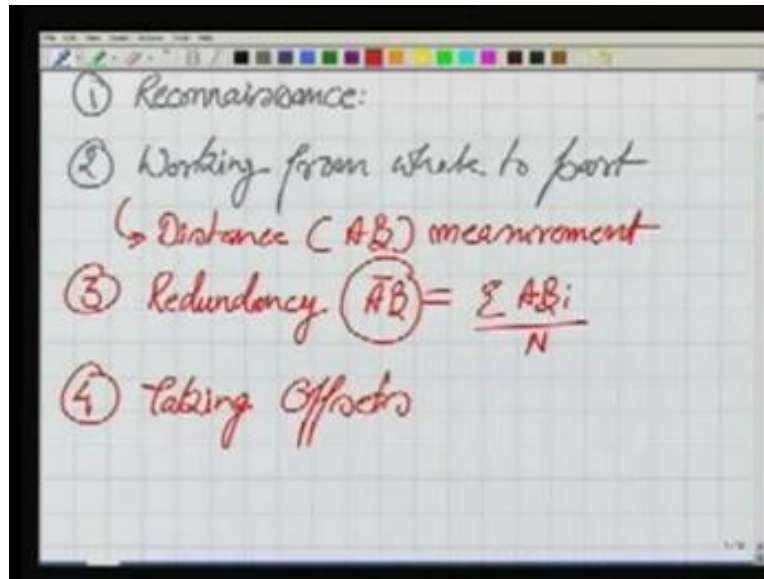 ① Reconnaissance:
② Working from whole to part
↳ Distance (AB) measurement
③ Redundancy A̅B̅ = Σ ABi / N
④ Taking Offsets